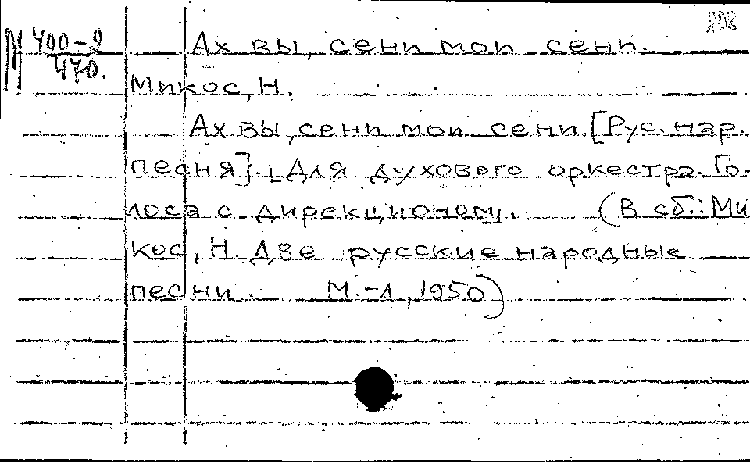 М 400-2
470.
Ах вы, сени мои сени.
Микос, Н.
Ах вы, сени мои сени. [Рус. нар.
песня]. Для духового оркестра. Го-
лоса с дирекционом. (В сб.: Ми
кос, Н. Две русские народные
песни. М.-Л, 1950)